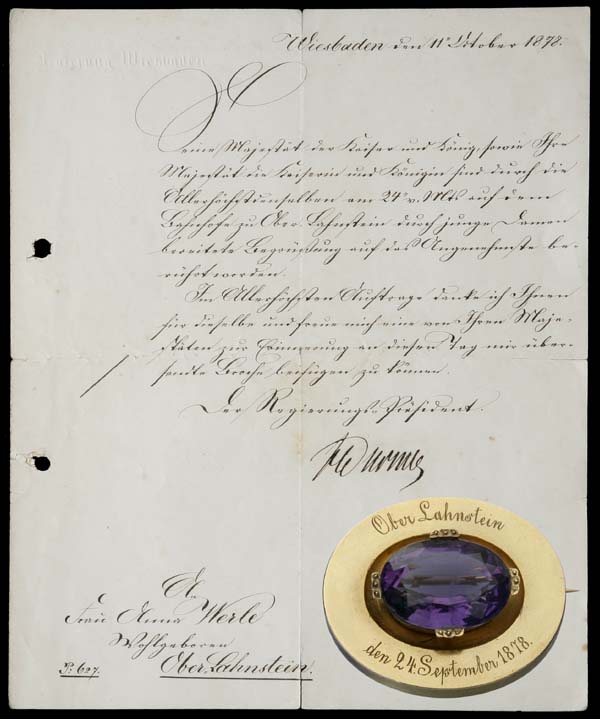 Wiesbaden den 11ᵗ Oktober 1878.
Seine Majestät der Kaiser und König, sowie Ihre
Majestät die Kaiserin und Königin sind durch die
Allerhöchstdenselben am 24ᵗ v. Mts auf dem
Bahnhofe zu Ober Lahnstein durch junge Damen
bereitete Begrüßung auf das Angenehmste be-
rührt worden.
Im Allerhöchsten Auftrage danke ich Ihnen
für dieselbe und freue mich eine von Ihren Maje-
stäten zur Erinnerung an diesen Tag mir über-
sandte Broche beifügen zu können.
Der Regierungs-Präsident.
An
Frau Anna Werle
Wohlgeboren
Ober Lahnstein.
Pr 627.
Ober Lahnstein
den 24. September 1878.